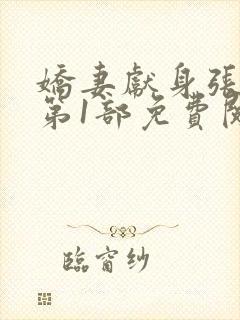 嬌妻獻身張
第1部免費閱
臨窗紗